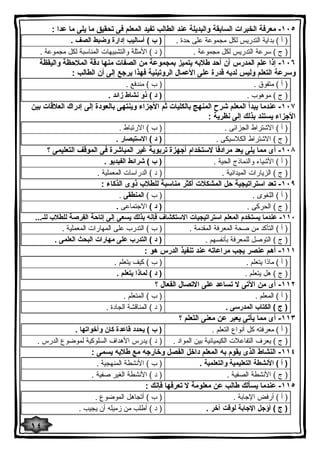 ١٠٥- معرفة الخبرات السابقة والبديلة عند الطالب تفيد المعلم في تحقيق ما يلى ما عدا :
( أ ) بداية التدريس لكل مجموعة على حدة . ( ب ) أساليب إدارة وضبط الصف .
( ج ) سرعة التدريس لكل مجموعة . ( د ) الأمثلة والتشبيهات المناسبة لكل مجموعة .
١٠٦- إذا علم المدرس أن أحد طلابه يتميز بمجموعة من الصفات منها دقة الملاحظة واليقظة
وسرعة التعلم وليس لديه قدرة على الأعمال الروتينية فهذا يرجع إلى أن الطالب :
( أ ) متفوق . ( ب ) مندفع .
( ج ) موهوب . ( د ) ذو نشاط زائد .
١٠٧- عندما يبدأ المعلم شرح المنهج بالكليات ثم الأجزاء وينتهى بالعودة إلى إدراك العلاقات بين
الأجزاء يستند بذلك إلى نظرية :
( أ ) الاشتراط الجزائى . ( ب ) الارتباط .
( ج ) الاشتراط الكلاسيكى . ( د ) الاستبصار .
١٠٨- أى مما يلى يعد مرادفاً لاستخدام أجهزة تربوية غير المباشرة في الموقف التعليمى ؟
( أ ) الأشياء والنماذج الحية . ( ب ) شرائط الفيديو .
( ج ) الزيارات الميدانية . ( د ) الدراسات المعملية .
١٠٩- تعد استراتيجية حل المشكلات أكثر مناسبة للطلاب ذوى الذكاء :
( أ ) اللغوى . ( ب ) المنطقى .
( ج ) الحركى . ( د ) الاجتماعى .
١١٠- عندما يستخدم المعلم استراتيجيات الاستكشاف فإنه بذلك يسعى إلى إتاحة الفرصة للطلاب للـ...
( أ ) التأكد من صحة المعرفة المقدمة . ( ب ) التدرب على المهارات المعملية .
( ج ) التوصل للمعرفة بأنفسهم . ( د ) التدرب على مهارات البحث العلمى .
١١١- أهم عنصر يجب مراعاته عند تنفيذ الدرس هو :
( أ ) ماذا يتعلم . ( ب ) كيف يتعلم .
( ج ) هل يتعلم . ( د ) لماذا يتعلم .
١١٢- أى من الأتى لا تساعد على الاتصال الفعال ؟
( أ ) المعلم . ( ب ) المتعلم .
( ج ) الكتاب المدرسى . ( د ) المناقشة الجادة .
١١٣- أى مما يأتى يعبر عن معنى التعلم ؟
( أ ) معرفته كل أنواع التعلم . ( ب ) يحدد قاعدة كان وأخواتها .
( ج ) يعرف التفاعلات الكيميائية بين المواد . ( د ) يدرس الأهداف السلوكية لموضوع الدرس .
١١٤- النشاط الذى يقوم به المعلم داخل الفصل وخارجه مع طلابه يسمى :
( أ ) الأنشطة التعليمية والتعلمية . ( ب ) الأنشطة المنهجية .
( ج ) الأنشطة الصفية . ( د ) الأنشطة الغير صفية .
١١٥- عندما يسألك طالب عن معلومة لا تعرفها فإنك :
( أ ) أرفض الإجابة . ( ب ) أتجاهل الموضوع .
( ج ) أؤجل الإجابة لوقت أخر . ( د ) أطلب من زميله أن يجيب .
١٤